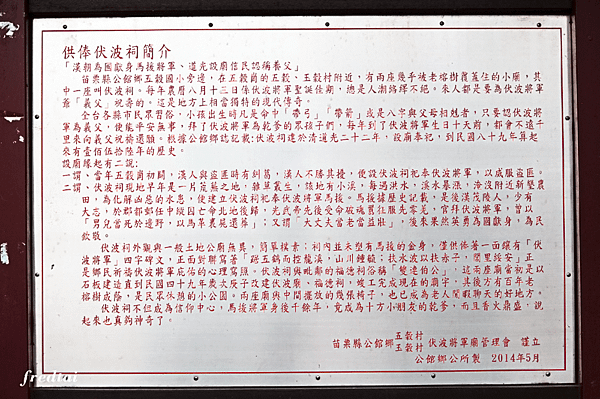 供俸伏波祠簡介
「漢朝為國獻身馬援將軍、道光設廟信民認稱養父」
苗栗縣公館鄉五穀國小旁邊，在五穀爵的五穀、玉穀村附近，有兩座幾乎被老榕樹覆蓋住的小廟，其
中一座叫伏波祠。每年農曆八月十三日係伏波將軍聖誕佳期，總是人潮絡繹不絕。來人都是要為伏波將軍
爺「義父」祝壽的。這是地方上相當獨特的現代傳奇。
全台各縣市民眾習俗，小孩出生時凡是命中「帶弓」「帶箭」或是八字與父母相剋者，只要認伏波將
軍為義父，便能平安無事，拜了伏波將軍為乾爹的眾孩子們，每年到了伏波將軍生日十天前，都會不遠千
里來向義父祝禱還願。根據公館鄉誌記載:伏波祠建於清道光二十二年，設廟奉祀，到民國八十九年算起
來有壹佰伍拾陸年的歷史。
設廟緣起有二說:
一謂，當年五穀爵初闢，漢人與盜匪時有糾葛，漢人不勝其擾，便設伏波祠祀奉伏波將軍，以威服盜匪。
二謂，伏波祠現地早年是一片荒蕪之地，雜草叢生，該地有小溪，每遇洪水，溪水暴漲，淹沒附近新墾農
田，為化解凶惡的水患，便建立伏波祠祀奉伏波將軍馬援。馬援據歷史記載，是後漢茂陵人，少有
大志，於郡都郵任中縱囚亡命北地後歸，光武帝先後受命破魂囂征服先零羌，官拜伏波將軍，曾以
「男兒當死於邊野，以馬革裹屍還葬」；又謂「大丈夫當老當益壯」，後來果然英勇為國獻身，為民
欽敬。
伏波祠外觀與一般土地公廟無異，簡單樸素；祠內並木塑有馬援的金身，僅供俸著一面鑲有「伏
波將軍」四字碑文，正面對聯寫著「跕玉鶴而控龍溪，山川鍾毓；扶水波以扶赤子，閭里綏安」正
是鄉民祈禱伏波將軍庇佑的心理寫照。伏波祠與毗鄰的福德祠俗稱「雙連伯公」，這兩座廟當初是以
石板建造直到民國四十九年農太庚子改建伏波廟，福德祠，竣工完成現在的廟宇，其後方有百年老
榕樹成蔭，是民眾休憩的小公園。兩座廟與中間擺放的幾張椅子，也已成為老人閒暇聊天的好地方。
伏波祠不但成為信仰中心，馬援將軍身後千餘年，竟成為十方小朋友的乾爹，而且香火鼎盛，說
起來也真夠神奇了。
苗栗縣公館鄉 五穀村 玉穀村 伏波將軍廟管理會 謹立
公館鄉公所製 2014年5月
fredtai